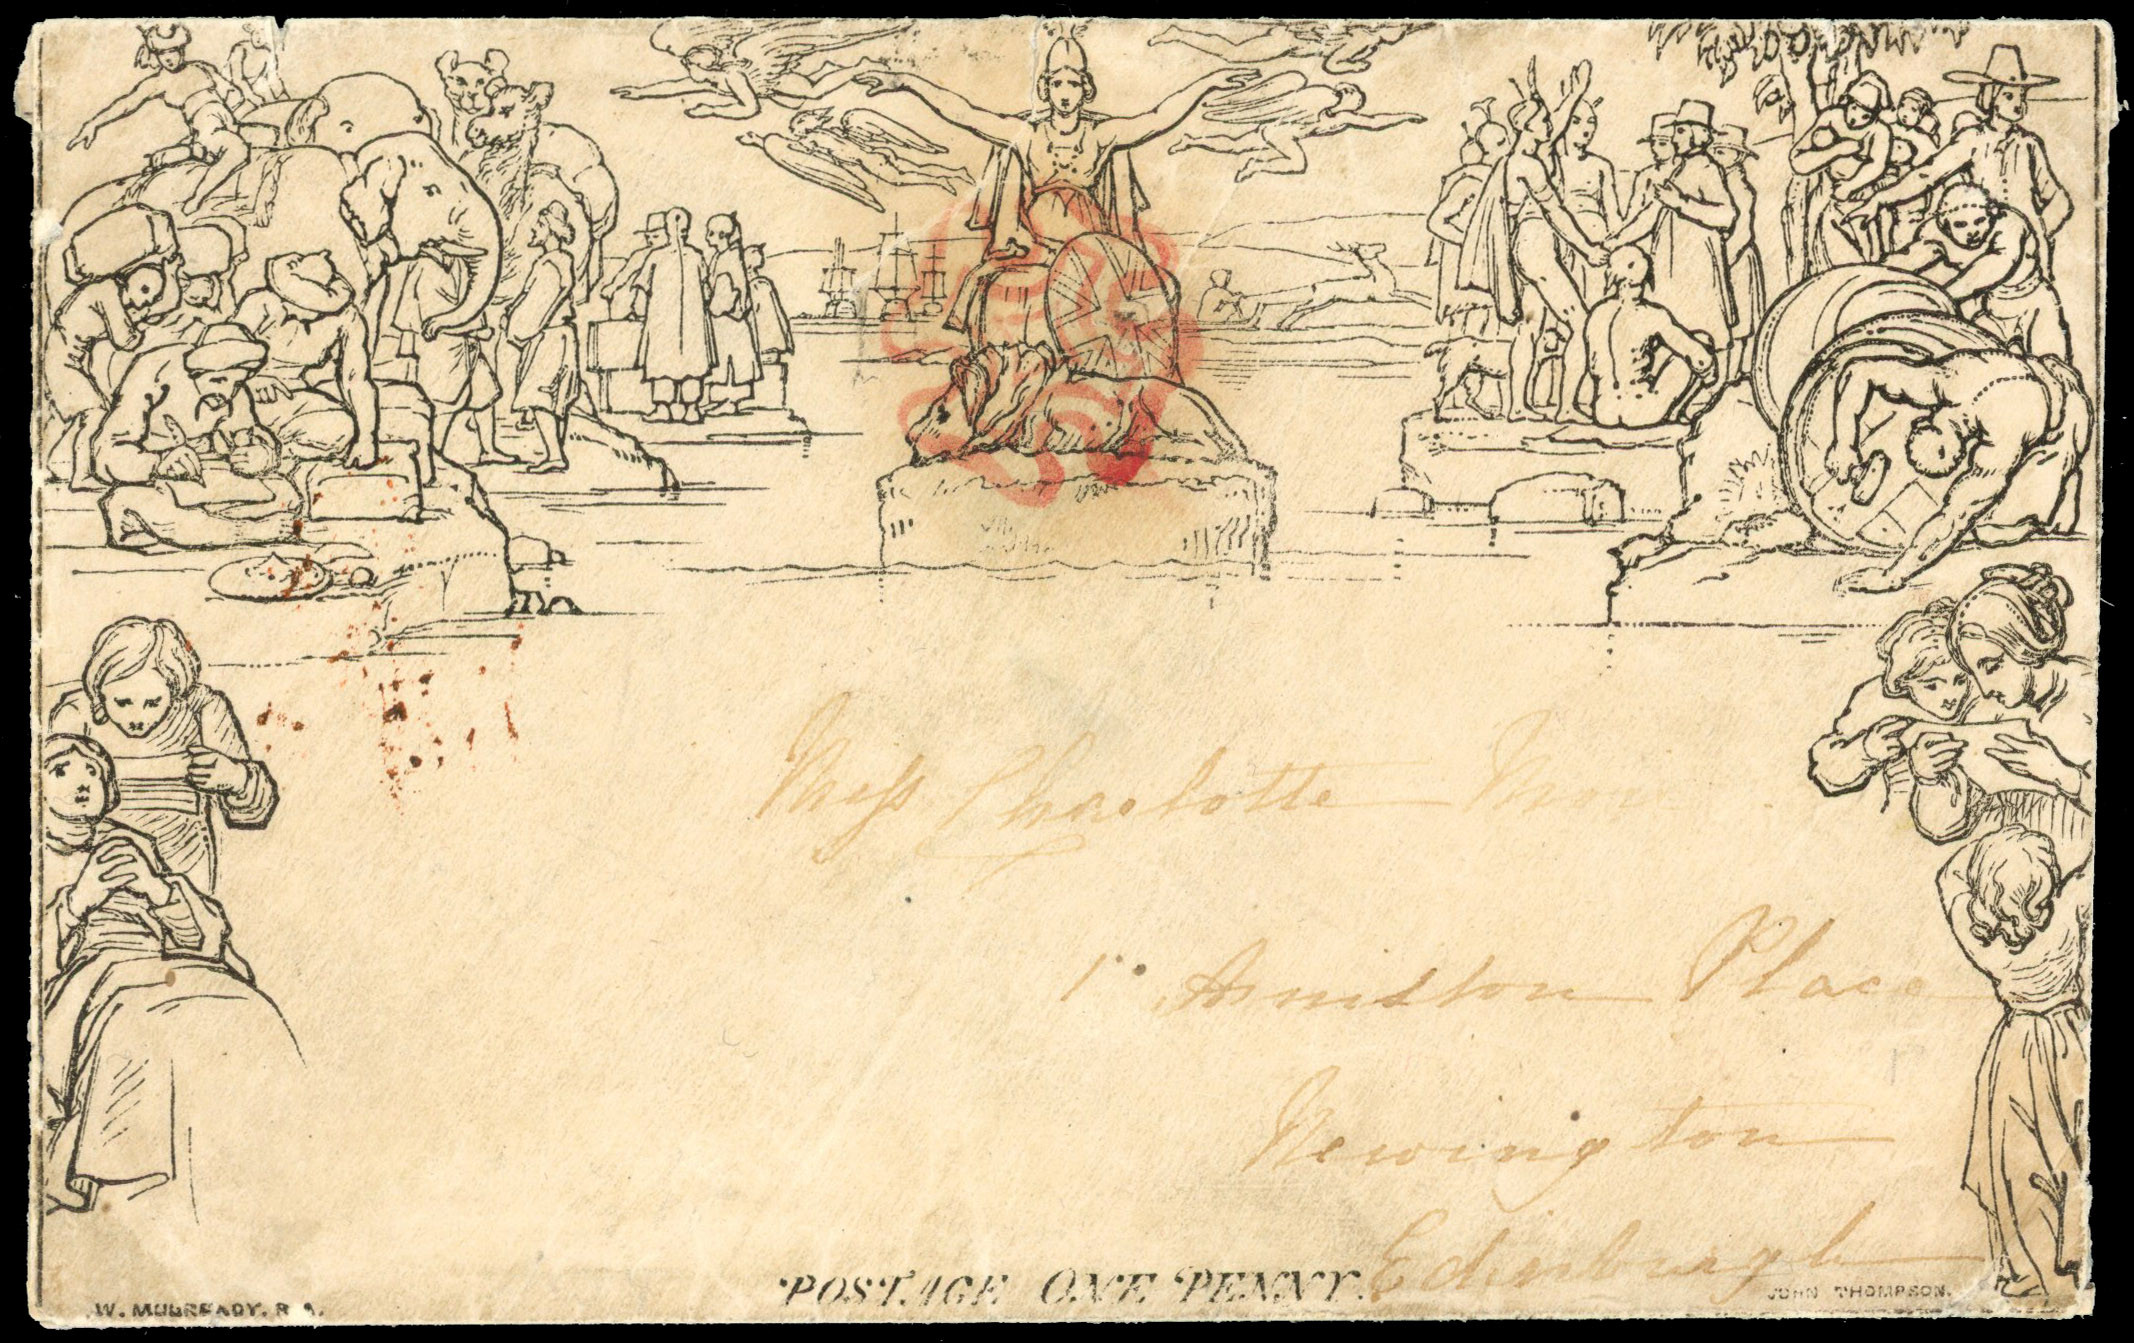 Miss Charlotte
1 Arniston Place
Newington
Edinburgh
POSTAGE ONE PENNY.
W. MULREADY. R.A.
JOHN THOMPSON.